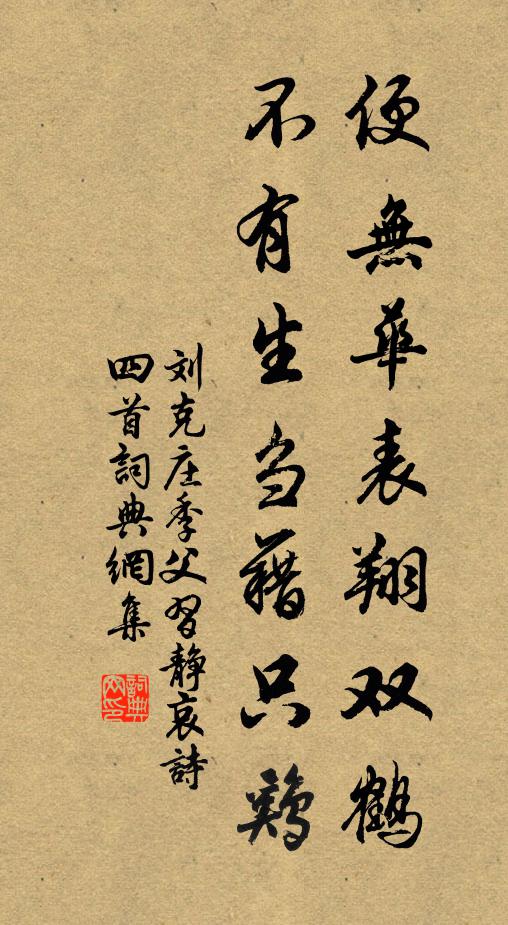 便無華表翔双鶴
不有生刍藉只鷄
刘克庄季父習静哀詩
四首詞典網集
詞典网印